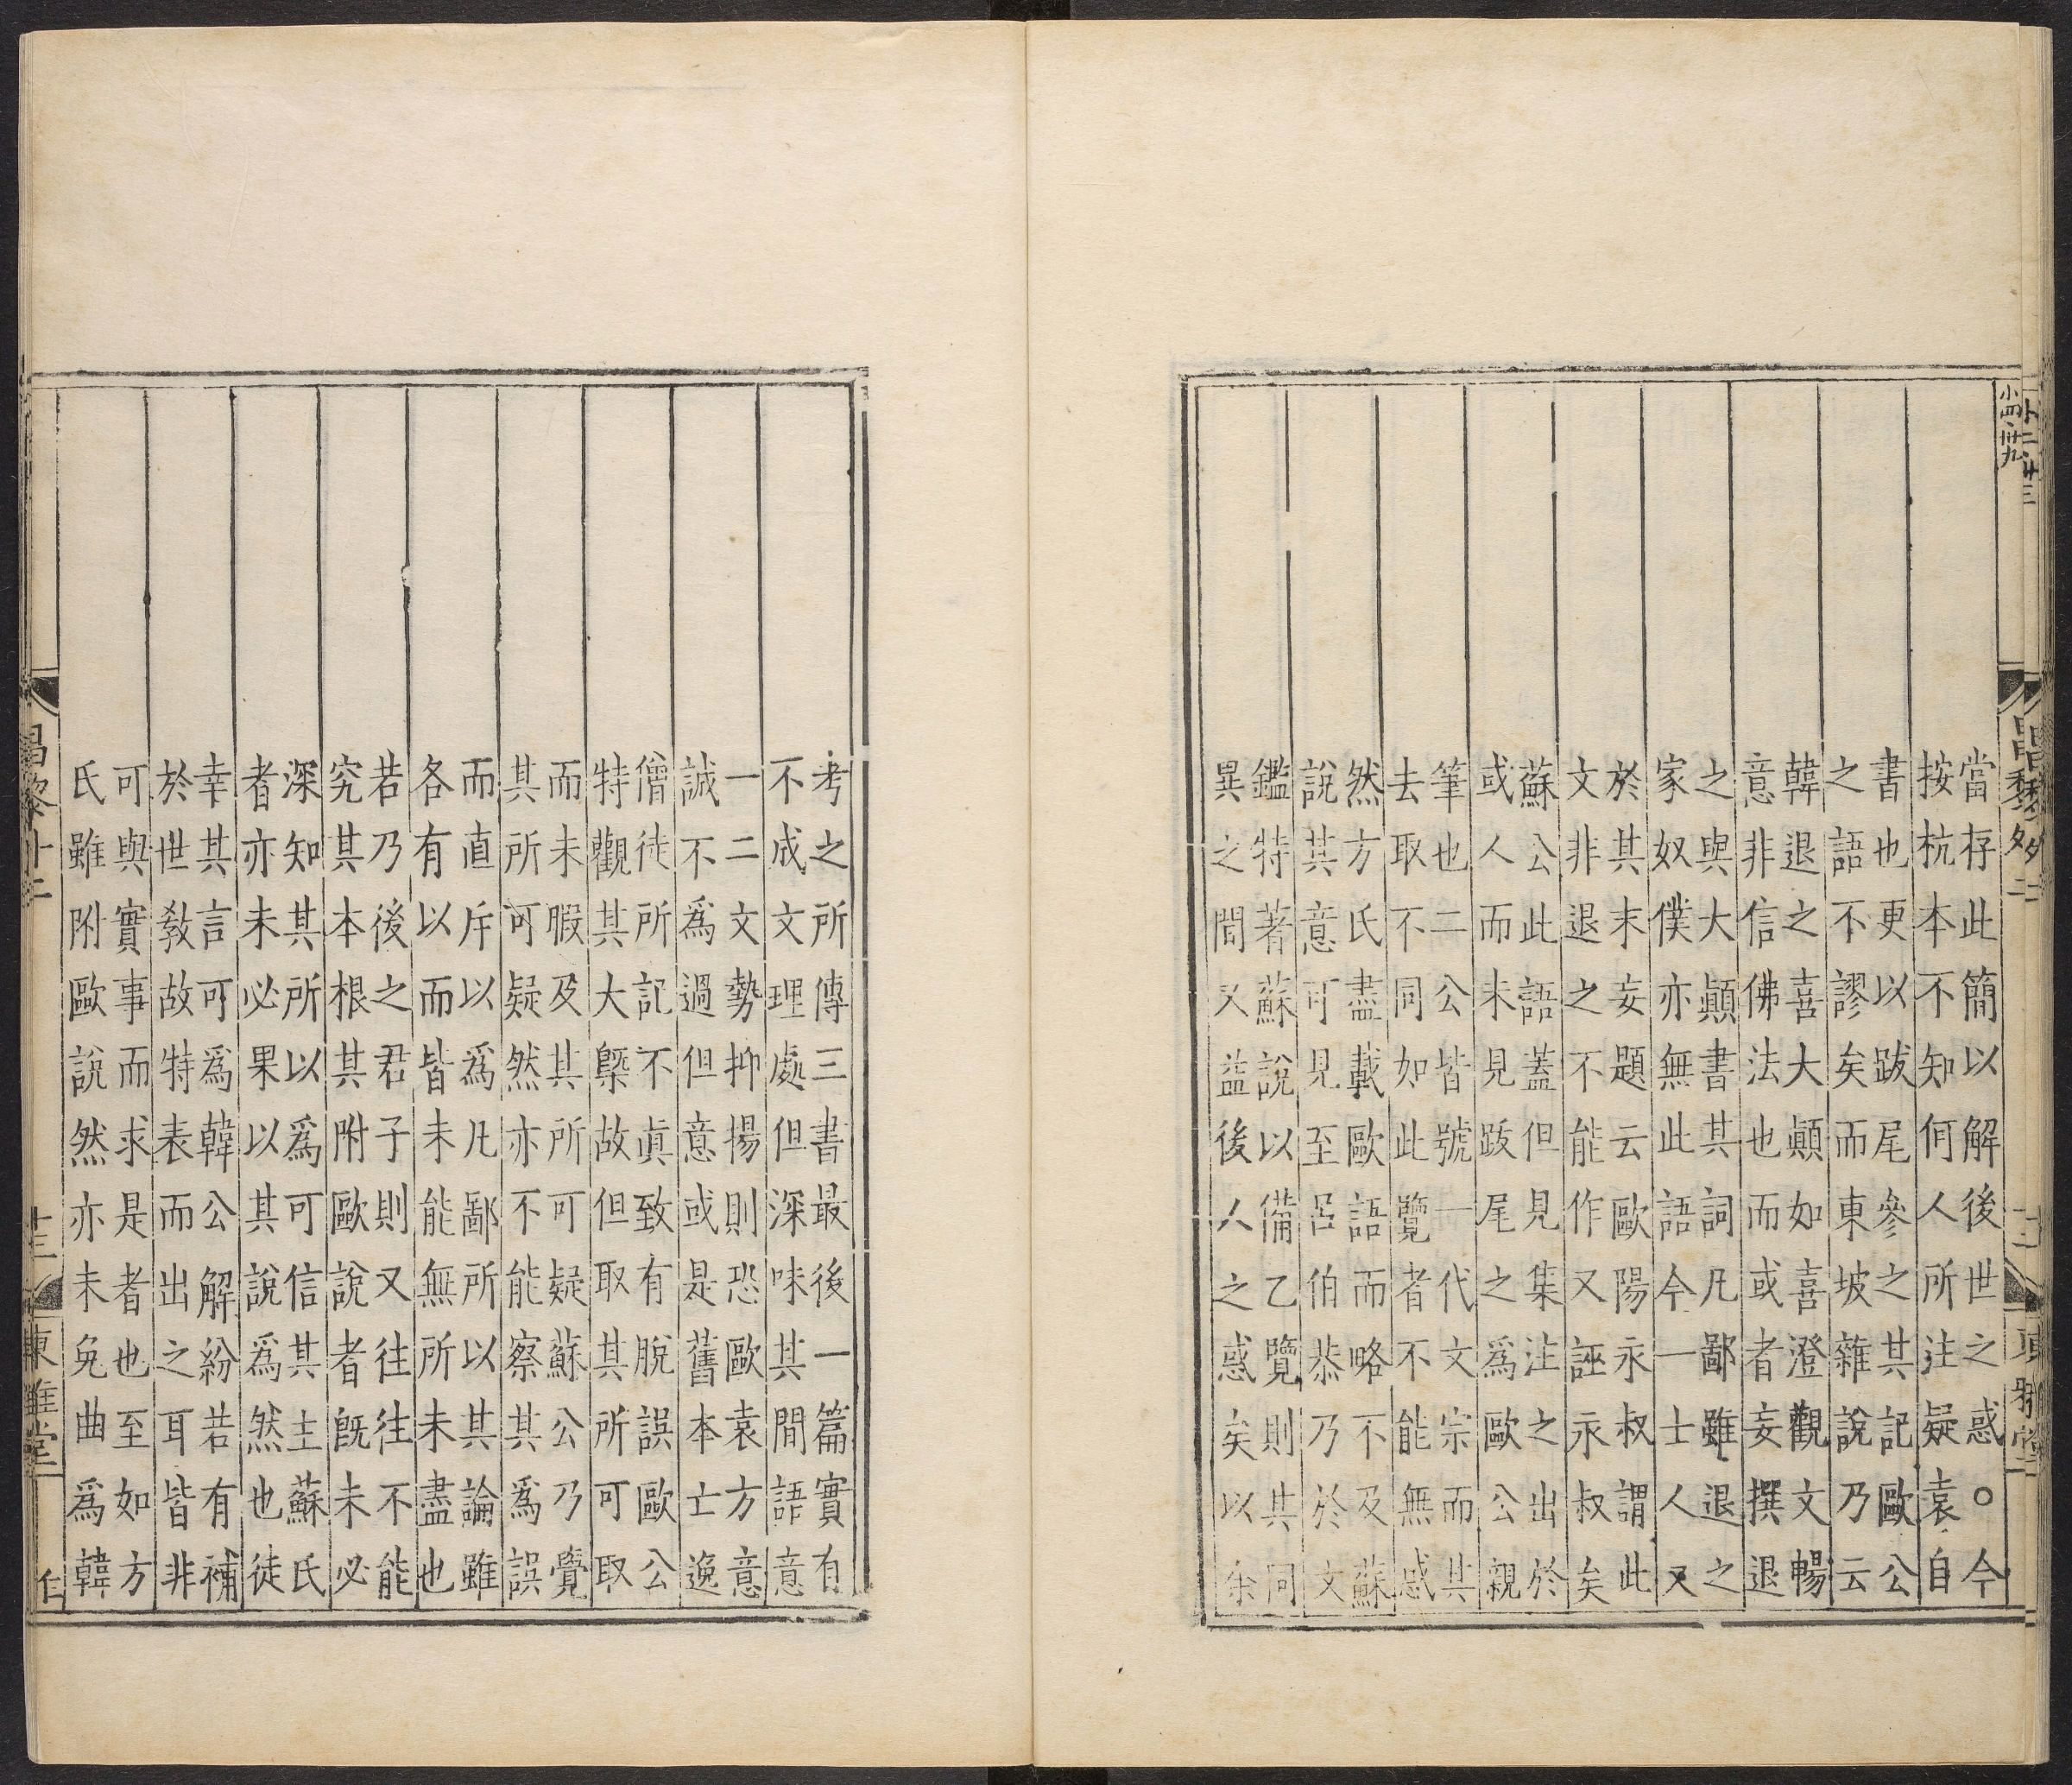 小四卅九
當存此簡以解後世之惑○今
按杭本不知何人所注疑袁自
書也更以跋尾參之其記歐公
之語不謬矣而東坡雜說乃云
韓退之喜大顚如喜澄觀文暢
意非信佛法也而或者妄撰退
之與大顚書其詞凡鄙雖退之
家奴僕亦無此語今一士人又
於其末妄題云歐陽永叔謂此
文非退之不能作又誣永叔矣
蘇公此語蓋但見集注之出於
或人而未見跋尾之爲歐公親
筆也二公皆號一代文宗而其
去取不同如此覽者不能無惑
然方氏盡載歐語而略不及蘇
說其意可見至呂伯恭乃於文
鑑特著蘇說以備乙覽則其同
異之間又益後人之惑矣以余
考之所傳三書最後一篇實有
不成文理處但深味其間語意
一二文勢抑揚則恐歐袁方意
誠不爲過但意或是舊本亡逸
僧徒所記不眞致有脫誤歐公
特觀其大槩故但取其所可取
而未暇及其所可疑蘇公乃覺
其所可疑然亦不能察其爲誤
而直斥以爲凡鄙所以其論雖
各有以而皆未能無所未盡也
若乃後之君子則又往往不能
究其本根其附歐說者旣未必
深知其所以爲可信其主蘇氏
者亦未必果以其說爲然也徒
幸其言可爲韓公解紛若有補
於世敎故特表而出之耳皆非
可與實事而求是者也至如方
氏雖附歐說然亦未免曲爲韓
昌黎外二
十三
東雅堂
任